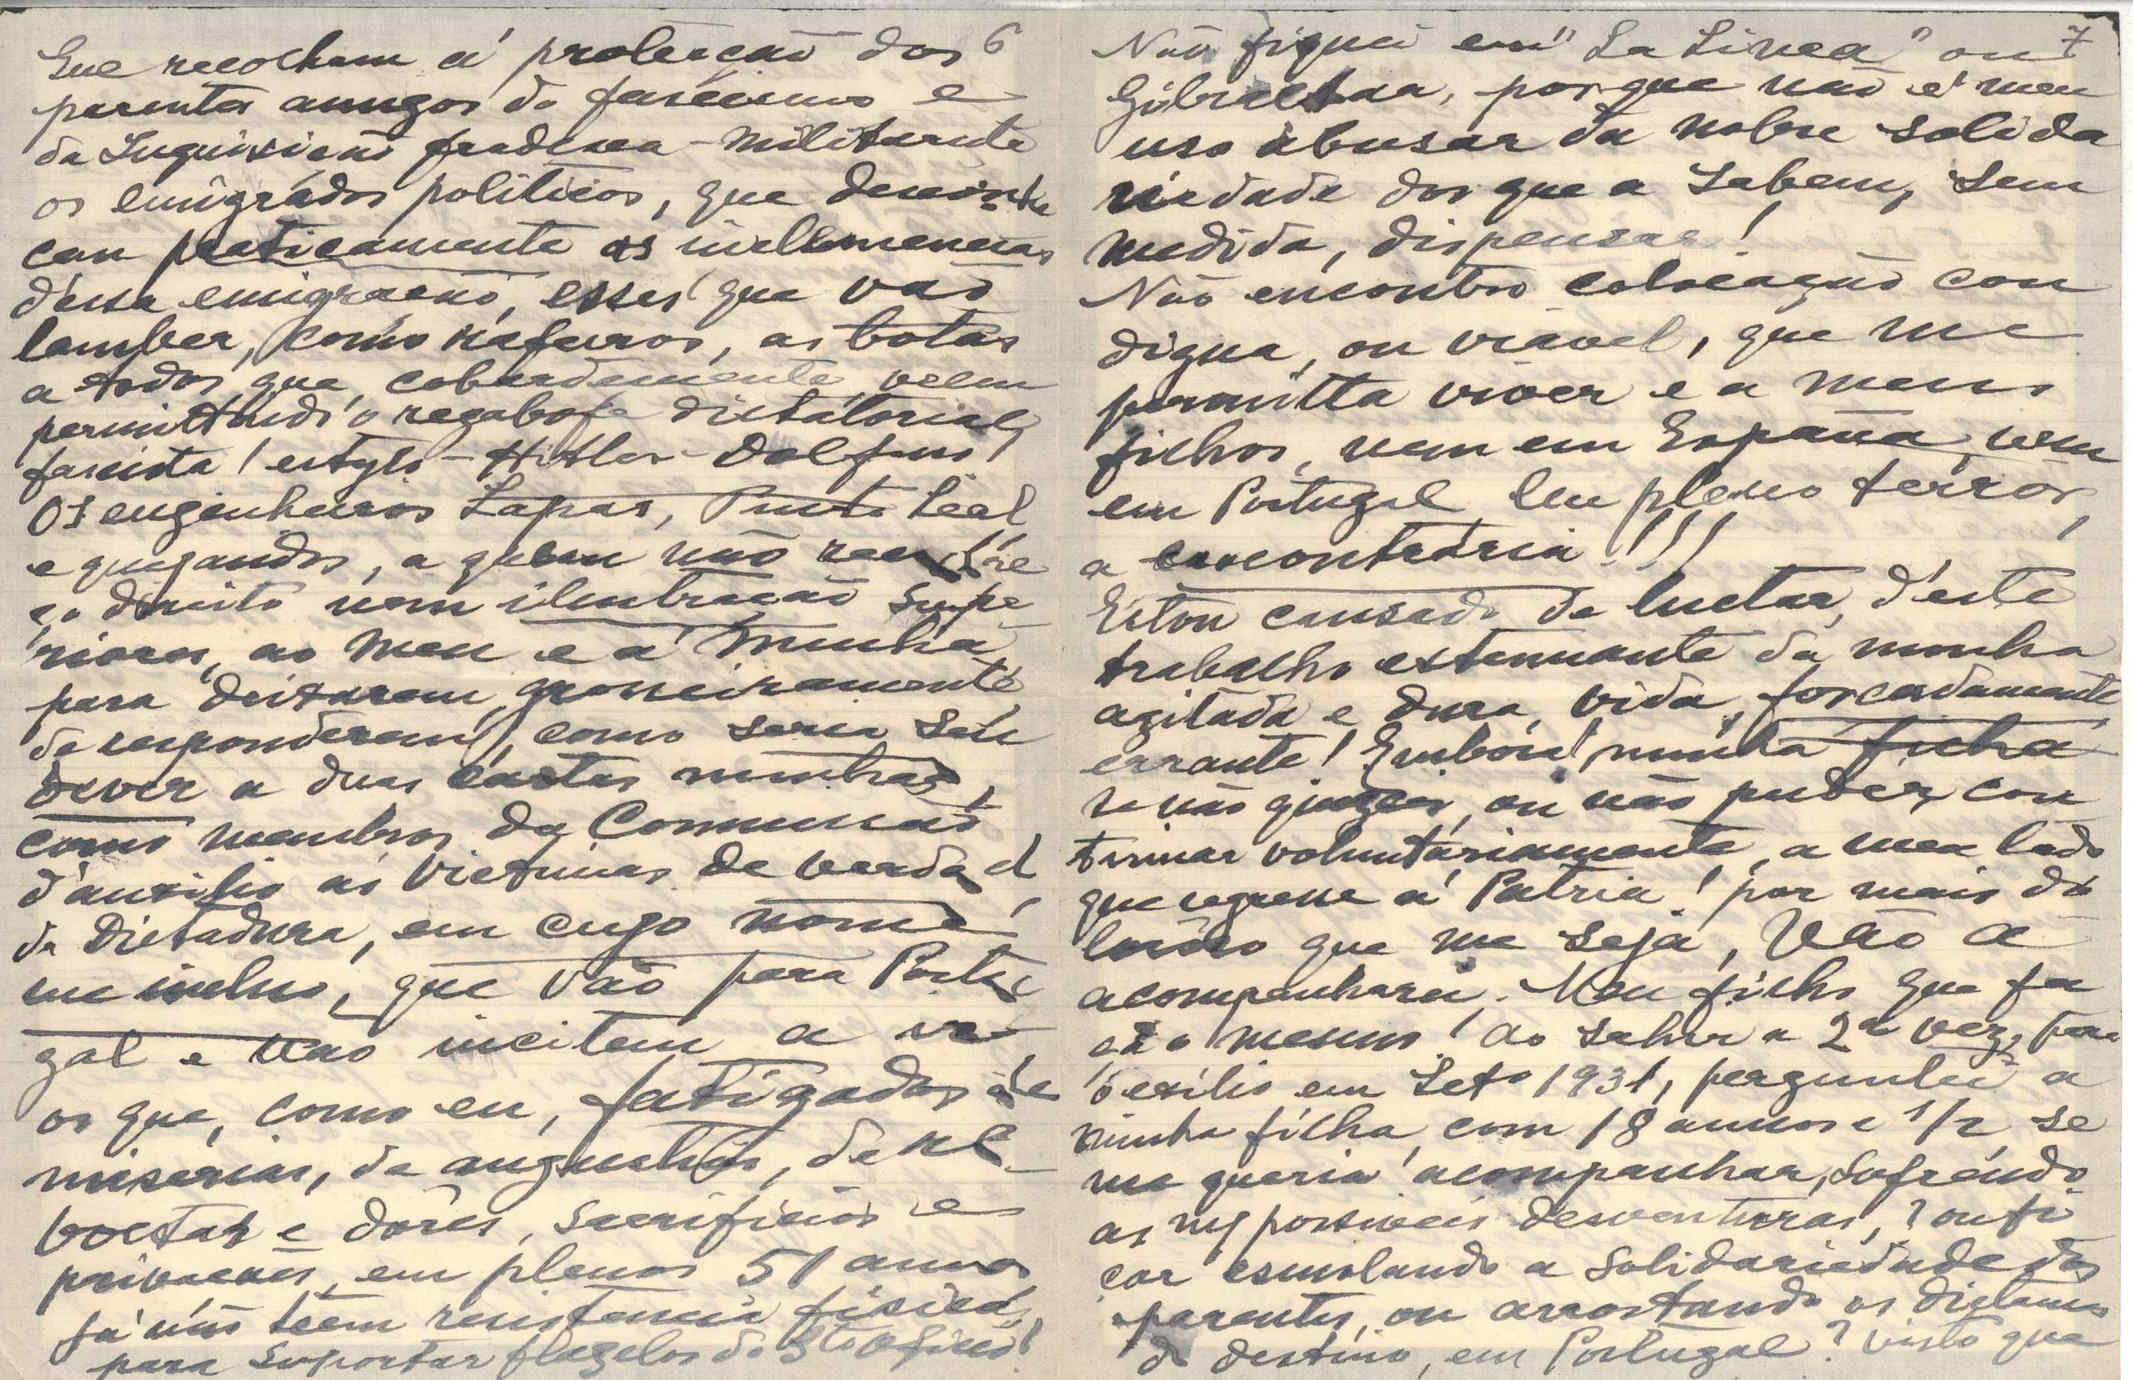 6
Que recolham á protecção dos
parentes amigos do fascismo e
da Inquisição fradesca-militarista
os emigrados politicos, que
praticamente as inclemencias
d'essa emigração, esses que vão
lamber, como rafeiros, as botas
a todos que, cobardemente, veem
permittindo o regabofe dictatorial,
fascista! estylo-Hitler-Dolfuss!
Os engenheiros Lapas, Pinto Leal
e quejandos, a quem não reconhe
ço direito nem illustração supe-
riores, ao meu e á minha
para deixarem, grosseiramente,
de responderem, como seria seu
dever a duas cartas minhas,
como membros da Commissão
d'auxilio ás victimas de verdad
da Dictadura, em cujo nome
me incluo, que vão para Portu
gal e não incitem a ir
os que, como eu, fatigados de
miserias, de angustias, de re-
voltas e dôres, sacrificios e
privações, em plenos 51 annos
já não teem resistencia fisica,
para suportar flagelos do
7
Não fiquei em "La Linea" ou
Gibraltar, porque não é meu
uso abusar da nobre solida
riedade dos que a sabem, sem
medida, dispensar!
Não encontro colocação con
digna, ou viavel, que me
permitta viver e a meus
filhos, nem em España, nem
em Portugal. Em pleno terror,
a encontraria!!!
Estou cansado de luctar, d'este
trabalho extenuante da minha
agitada e dura, vida, forçadamente
errante! Embora! minha filha
se não quizer, ou não puder, con
tinuar voluntáriamente, a meu lado
que regresse á Patria! por mais do
loroso que me seja, Não a
acompanharei. Meu filho que fa
ça o mesmo! Ao sahir a 2ª vez, para
o exilio em Setº 1931, perguntei a
minha filha, com 18 annos e 1/2 se
me queria acompanhar, sofrendo
as possiveis desventuras,? ou fi
car esmolando a solidariedade dos
parentes, ou arrostando os
do destino, em Portugal? visto que